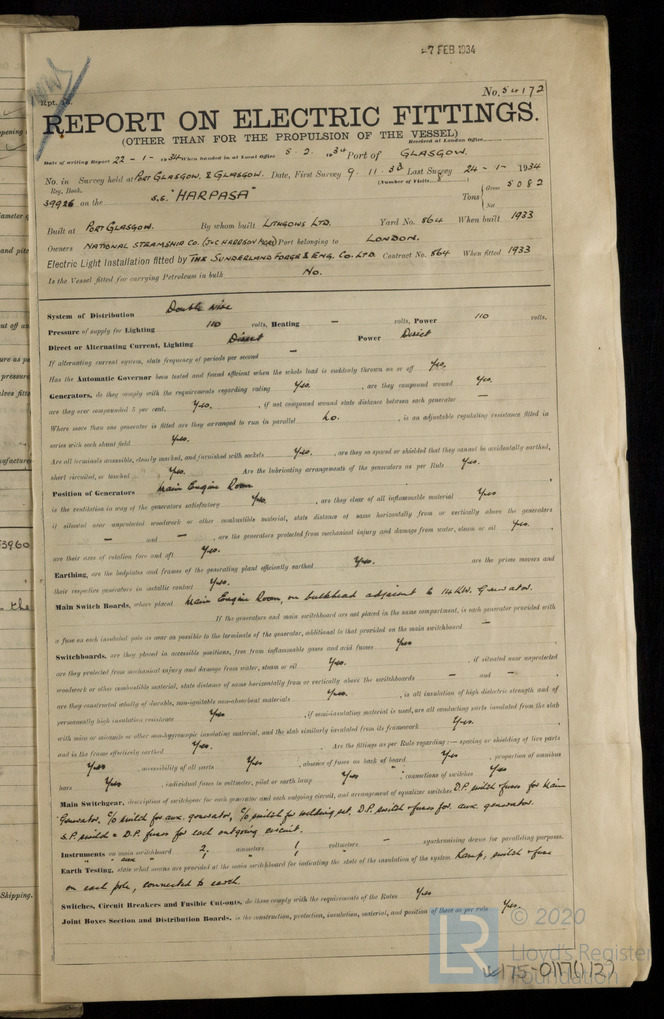 27 FEB 1934
No. 54172
REPORT ON ELECTRIC FITTINGS.
(OTHER THAN FOR THE PROPULSION OF THE VESSEL)
Received at London Office
Date of writing Report 22-1-1934 When handed in at Local Office 5.2.1934 Port of GLASGOW.
No. in Survey held at PORT GLASGOW. & GLASGOW. Date, First Survey 9.11.33 Last Survey 24-1-1934
Reg. Book. (Number of Visits 8)
39926 on the S.S. "HARPASA" Tons { Gross 5082
Net
Built at PORT GLASGOW. By whom built LITHGOWS LTD. Yard No. 864 When built 1933
Owners NATIONAL STEAMSHIP CO. (J & C HARRISON MGRS) Port belonging to LONDON.
Electric Light Installation fitted by THE SUNDERLAND FORGE & ENG. CO. LTD. Contract No. 864 When fitted 1933
Is the Vessel fitted for carrying Petroleum in bulk No.
System of Distribution Double wire
Pressure of supply for Lighting 110 volts, Heating — volts, Power 110 volts.
Direct or Alternating Current, Lighting Direct Power Direct
If alternating current system, state frequency of periods per second —
Has the Automatic Governor been tested and found efficient when the whole load is suddenly thrown on or off Yes.
Generators, do they comply with the requirements regarding rating Yes. , are they compound wound Yes.
are they over compounded 5 per cent. Yes. , if not compound wound state distance between each generator —
Where more than one generator is fitted are they arranged to run in parallel No. , is an adjustable regulating resistance fitted in
series with each shunt field Yes.
Are all terminals accessible, clearly marked, and furnished with sockets Yes. , are they so spaced or shielded that they cannot be accidentally earthed,
short circuited, or touched Yes. Are the lubricating arrangements of the generators as per Rule Yes.
Position of Generators Main Engine Room
is the ventilation in way of the generators satisfactory Yes. , are they clear of all inflammable material Yes
if situated near unprotected woodwork or other combustible material, state distance of same horizontally from or vertically above the generators
— and — , are the generators protected from mechanical injury and damage from water, steam or oil Yes.
are their axes of rotation fore and aft Yes.
Earthing, are the bedplates and frames of the generating plant efficiently earthed Yes. are the prime movers and
their respective generators in metallic contact Yes.
Main Switch Boards, where placed Main Engine Room, on bulkhead adjacent to 14 KW. Generator.
If the generators and main switchboard are not placed in the same compartment, is each generator provided with
a fuse on each insulated pole as near as possible to the terminals of the generator, additional to that provided on the main switchboard —
Switchboards, are they placed in accessible positions, free from inflammable gases and acid fumes Yes
are they protected from mechanical injury and damage from water, steam or oil Yes. , if situated near unprotected
woodwork or other combustible material, state distance of same horizontally from or vertically above the switchboards — and — ,
are they constructed wholly of durable, non-ignitable non-absorbent materials Yes. , is all insulation of high dielectric strength and of
permanently high insulation resistance Yes , if semi-insulating material is used, are all conducting parts insulated from the slab
with mica or micanite or other non-hygroscopic insulating material, and the slab similarly insulated from its framework Yes.
and is the frame effectively earthed Yes. Are the fittings as per Rule regarding:— spacing or shielding of live parts
Yes , accessibility of all parts Yes , absence of fuses on back of board Yes , proportion of omnibus
bars Yes , individual fuses to voltmeter, pilot or earth lamp Yes , connections of switches Yes
Main Switchgear, description of switchgear for each generator and each outgoing circuit, and arrangement of equalizer switches D.P. switch & fuses for Main
Generator, C/O switch for aux. generator, C/O switch for welding set, D.P. switch & fuses for aux. generator.
S.P. switch & D.P. fuses for each outgoing circuit.
Instruments on main switchboard 2 ammeters 1 voltmeters — synchronising device for paralleling purposes.
" " aux " 1 " 1 "
Earth Testing, state what means are provided at the main switchboard for indicating the state of the insulation of the system Lamp, switch & fuse
on each pole, connected to earth.
Switches, Circuit Breakers and Fusible Cut-outs, do these comply with the requirements of the Rules Yes
Joint Boxes Section and Distribution Boards, is the construction, protection, insulation, material, and position of these as per rule Yes.
© 2020
Lloyd's Register
Foundation
LR
W175-0117(1/2)
3960
the
Shipping.